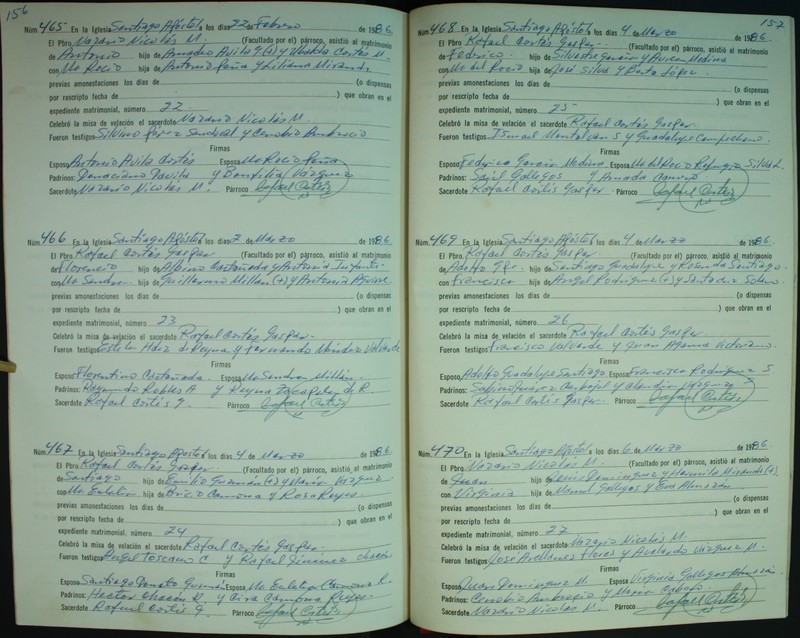 156
Núm. 465 En la Iglesia Santiago Apóstol los días 22 Febrero de 1986
El Pbro. Nazario Nicolás M. (Facultado por el) párroco, asistió al matrimonio
de Antonio hijo de Amadeo Avila G (+) y Ubalda Cortés M.
con Ma Rocio hija de Antonio Peña y Liliana Miranda
previas amonestaciones los días de (o dispensas
por rescripto fecha de ) que obran en el
expediente matrimonial, número 22
Celebró la misa de velación el sacerdote Nazario Nicolás M.
Fueron testigos Silvino Sandoval y Cenobio Ambrocio
Firmas
Esposo Antonio Avila Cortés Esposa Ma Rocio Peña
Padrinos: Donaciano Davila y Bonfilia Vázquez
Sacerdote Nazario Nicolás M. Párroco Rafael Cortés
Núm. 466 En la Iglesia Santiago Apóstol los días 2 de Marzo de 1986
El Pbro. Rafael Cortés Gaspar (Facultado por el) párroco, asistió al matrimonio
de Florencio hijo de Castañada y Antonia Infante
con Ma Sandra hija de Guillermo Millán (+) y Antonia Aguirre
previas amonestaciones los días de (o dispensas
por rescripto fecha de ) que obran en el
expediente matrimonial, número 23
Celebró la misa de velación el sacerdote Rafael Cortés Gaspar
Fueron testigos Reyna y Fernando Méndez
Firmas
Esposo Florentino Castañada Esposa Ma Sandra Millán
Padrinos: Raymundo Robles A y Reyna de R.
Sacerdote Rafael Cortés G. Párroco Rafael Cortés
Núm. 467 En la Iglesia Santiago Apóstol los días 4 de Marzo de 1986
El Pbro. Rafael Cortés Gaspar (Facultado por el) párroco, asistió al matrimonio
de Santiago hijo de Emilio Guzmán (+) y María Vazquez
con Ma Eulalia hija de Carmona y Rosa Reyes
previas amonestaciones los días de (o dispensas
por rescripto fecha de ) que obran en el
expediente matrimonial, número 24
Celebró la misa de velación el sacerdote Rafael Cortés Gaspar
Fueron testigos Angel Toscano C y Rafael Jiménez Chacón
Firmas
Esposo Santiago Guzmán Esposa Ma Eulalia Carmona R.
Padrinos: Hector Chacón R. y Cira Carmona Reyes
Sacerdote Rafael Cortés G. Párroco Rafael Cortés
157
Núm. 468 En la Iglesia Santiago Apóstol los días 4 Marzo de 1986
El Pbro. Rafael Cortés Gaspar (Facultado por el) párroco, asistió al matrimonio
de Federico hijo de Silvestre García y Aurea Medina
con Ma del Rocio hija de José Silva y Berta López
previas amonestaciones los días de (o dispensas
por rescripto fecha de ) que obran en el
expediente matrimonial, número 25
Celebró la misa de velación el sacerdote Rafael Cortés Gaspar
Fueron testigos Ismael Montalván S y Guadalupe Campechano
Firmas
Esposo Federico García Medina Esposa Ma del Rocio Refugio Silva L.
Padrinos: Saúl Gallegos y Amada
Sacerdote Rafael Cortés Gaspar Párroco Rafael Cortés
Núm. 469 En la Iglesia Santiago Apóstol los días 4 Marzo de 1986
El Pbro. Rafael Cortés Gaspar (Facultado por el) párroco, asistió al matrimonio
de Adolfo Gpe. hijo de Santiago Guadalupe y Rosenda Santiago
con Francisca hija de Angel Rodríguez (+) y
previas amonestaciones los días de (o dispensas
por rescripto fecha de ) que obran en el
expediente matrimonial, número 26
Celebró la misa de velación el sacerdote Rafael Cortés Gaspar
Fueron testigos Francisco Valverde y Juan Victoriano
Firmas
Esposo Adolfo Guadalupe Santiago Esposa Francisca Rodríguez S
Padrinos: Sabino Carbajal y Claudia Vazquez
Sacerdote Rafael Cortés Gaspar Párroco Rafael Cortés
Núm. 470 En la Iglesia Santiago Apóstol los días 6 de Marzo de 1986
El Pbro. Nazario Nicolás M. (Facultado por el) párroco, asistió al matrimonio
de Juan hijo de Domínguez y Hermila Miranda (+)
con Virginia hija de Manuel Gallegos y Eva Almazán
previas amonestaciones los días de (o dispensas
por rescripto fecha de ) que obran en el
expediente matrimonial, número 27
Celebró la misa de velación el sacerdote Nazario Nicolás M.
Fueron testigos José Arellanes Flores y Abelardo Vázquez M.
Firmas
Esposo Juan Domínguez M. Esposa Virginia Gallegos Almazán
Padrinos: Cenobio Ambrocio y María
Sacerdote Nazario Nicolás M. Párroco Rafael Cortés